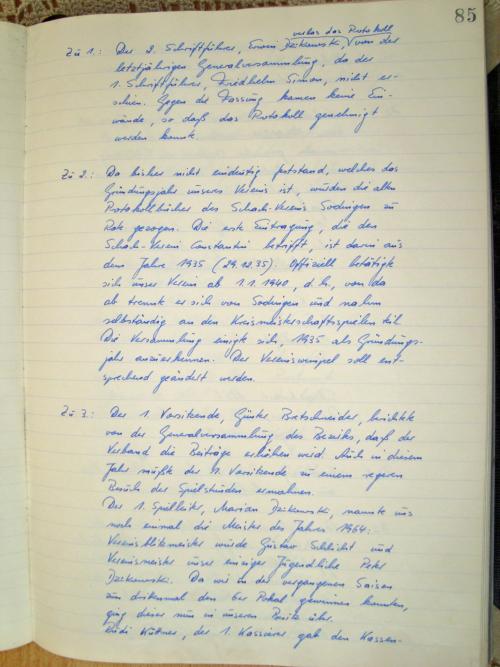 85
verlas das Protokoll
Zu 1.: Der 2. Schriftführer, Erwin Dzikowski, von der
letztjährigen Generalversammlung, da der
1. Schriftführer, Friedhelm Simon, nicht er-
schien. Gegen die Fassung kamen keine Ein-
wände, so daß das Protokoll genehmigt
werden konnte.
Zu 2.: Da bisher nicht eindeutig feststand, welches das
Gründungsjahr unseres Vereins ist, wurden die alten
Protokollbücher des Schach-Vereins Sodingen zu
Rate gezogen. Die erste Eintragung, die den
Schach-Verein Constantin betrifft, ist darin aus
dem Jahre 1935 (29.12.35). Offiziell betätigte
sich unser Verein ab 1.1.1940, d.h., von da
ab trennte er sich von Sodingen und nahm
selbständig an den Kreismeisterschaftsspielen teil.
Die Versammlung einigte sich, 1935 als Gründungs-
jahr anzuerkennen. Der Vereinswimpel soll ent-
sprechend geändert werden.
Zu 3.: Der 1. Vorsitzende, Günter Bretschneider, berichtete
von der Generalversammlung des Bezirks, daß der
Verband die Beiträge erhöhen werd. Auch in diesem
Jahr mußte der 1. Vorsitzende zu einem regeren
Besuch der Spielstunden ermahnen.
Der 1. Spielleiter, Marian Dzikowski, nannte uns
noch einmal die Meister des Jahres 1964:
Vereinsblitzmeister wurde Gustav Schlicht und
Vereinsmeister unser einziger Jugendliche Peter
Dzikowski. Da wir in der vergangenen Saison
zum drittenmal den 6er Pokal gewinnen konnten,
ging dieser nun in unseren Besitz über.
Rudi Küttner, der 1. Kassierer gab den Kassen-